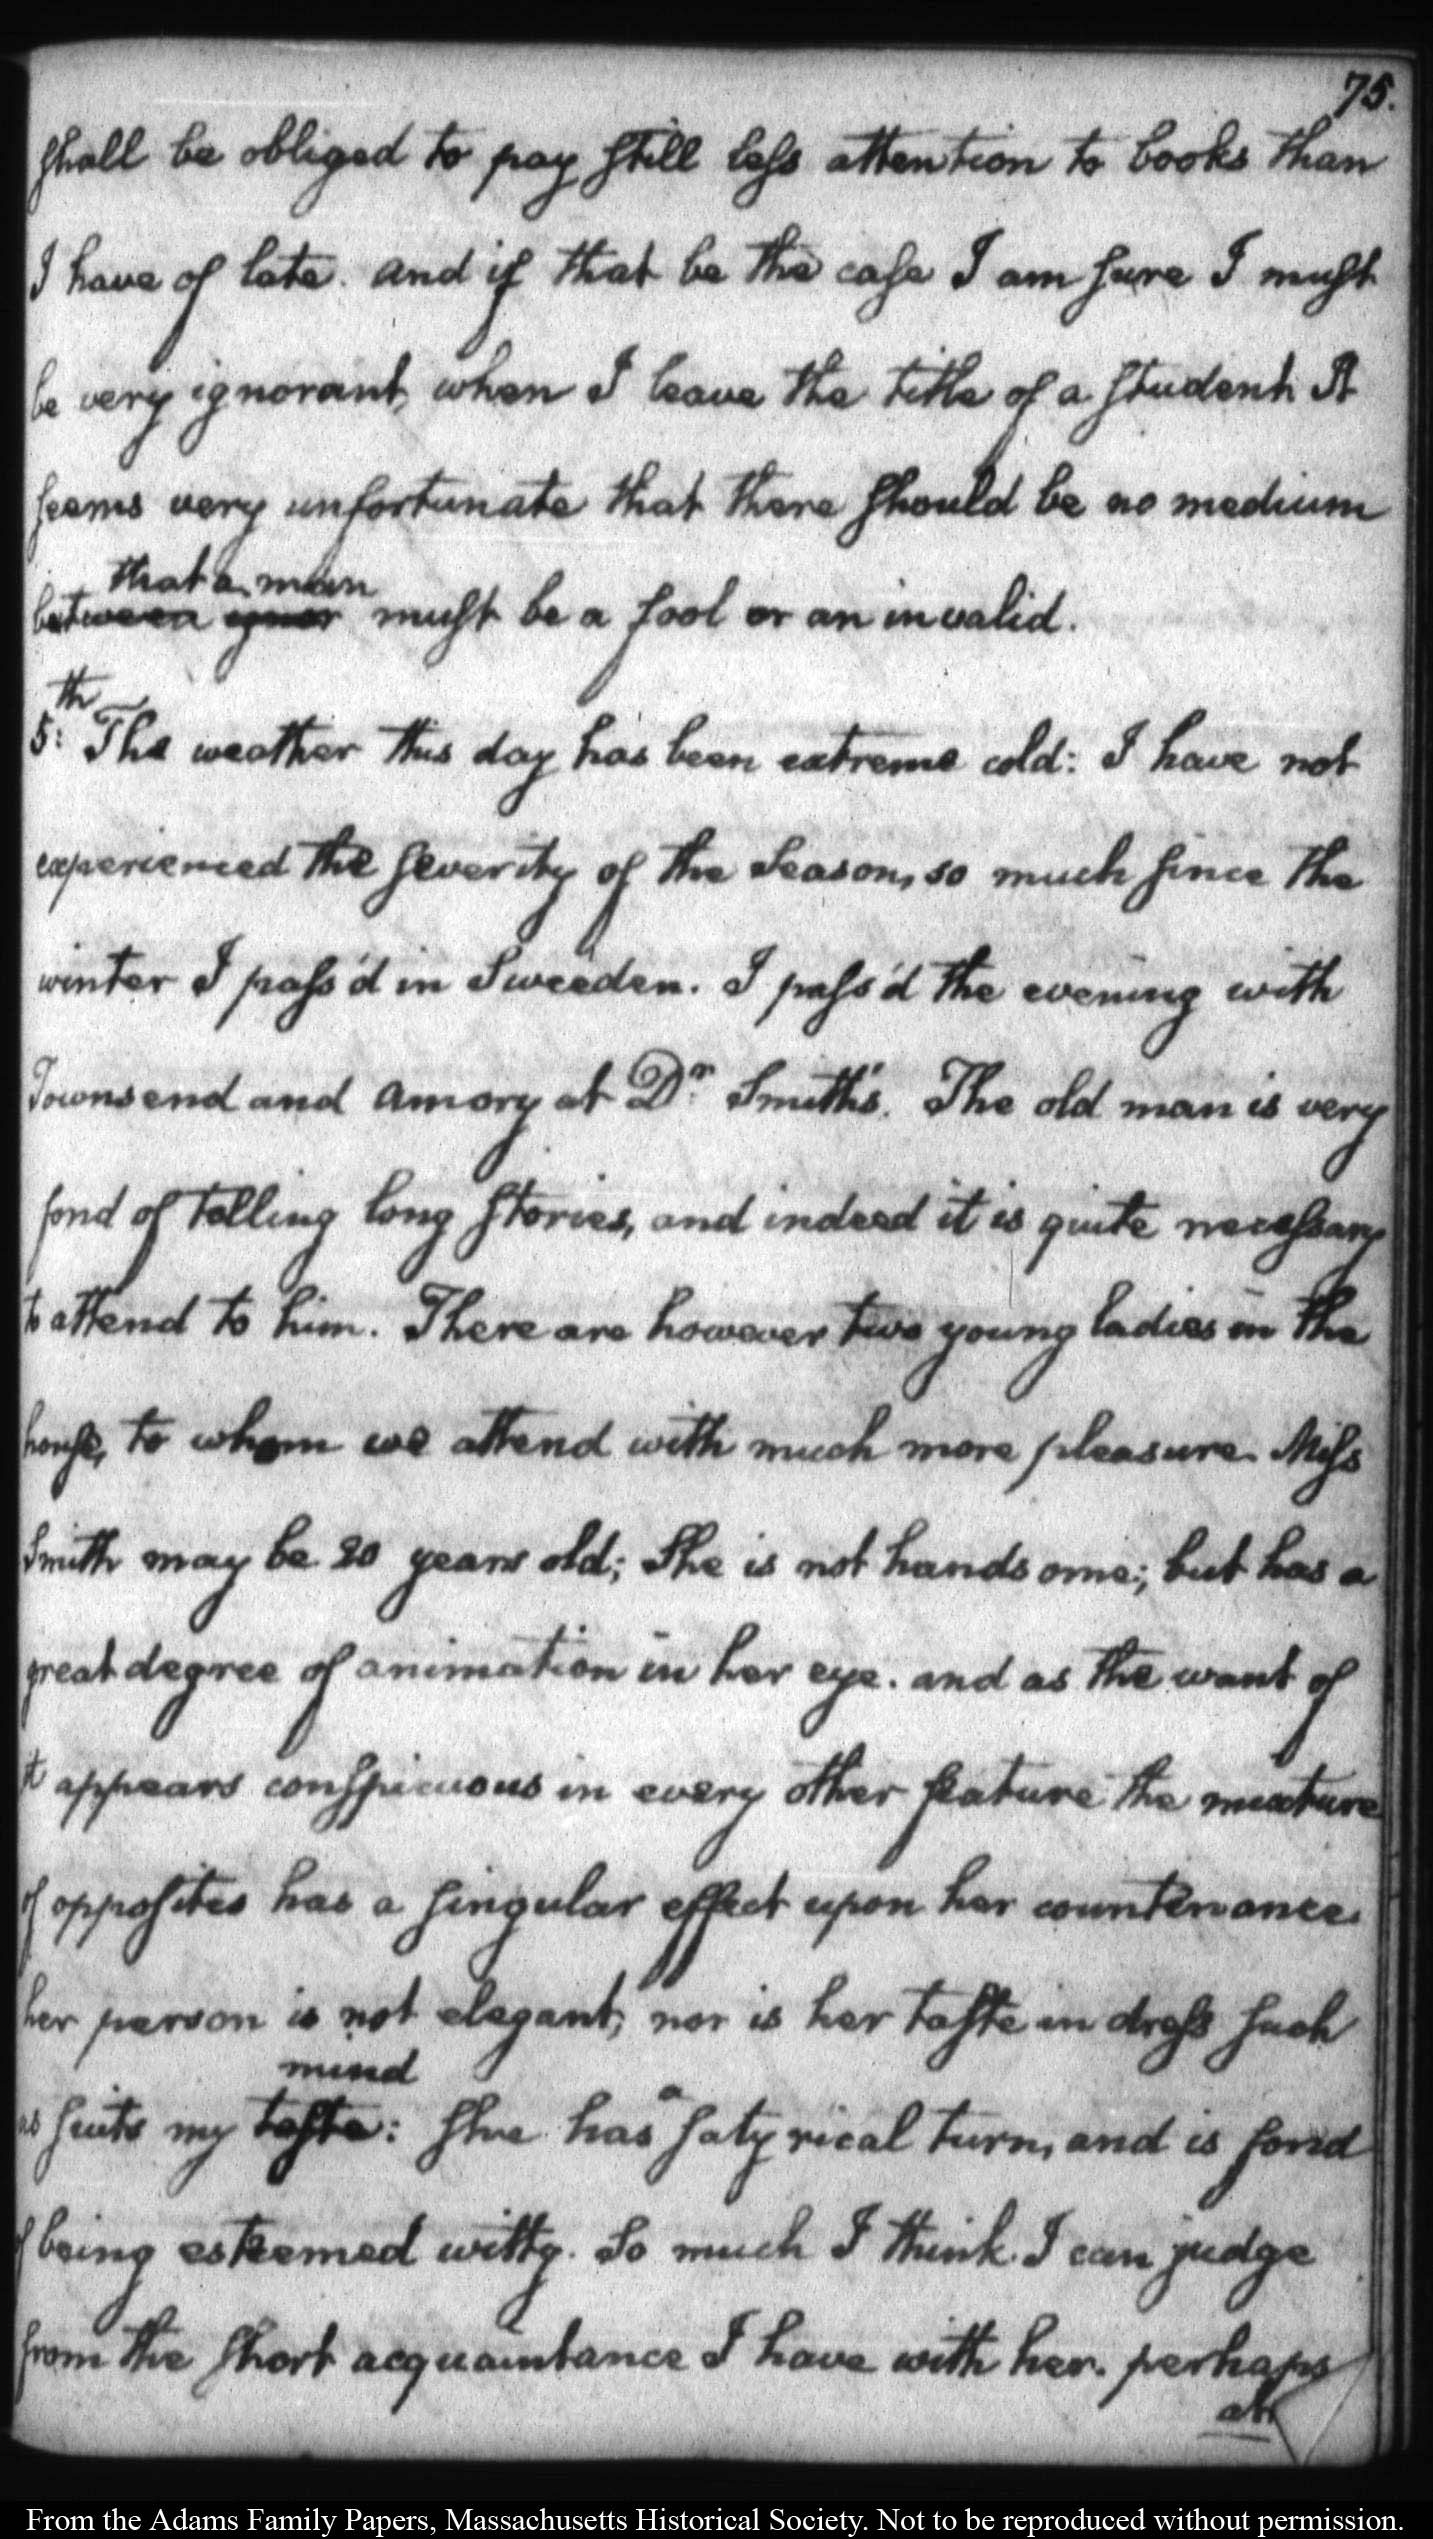 75.
shall be obliged to pay still less attention to books than
I have of late. and if that be the case I am sure I must
be very ignorant, when I leave the title of a student. It
seems very unfortunate that there should be no medium
that a man
between ignor must be a fool or an invalid.
5:th The weather this day has been extreme cold: I have not
experienced the severity of the Season, so much since the
winter I pass'd in Sweeden. I pass'd the evening with
Townsend and Amory at Dr. Smith's. The old man is very
fond of telling long stories, and indeed it is quite necessary
to attend to him. There are however two young ladies in the
house, to whom we attend with much more pleasure. Miss
Smith may be 20 years old; She is not handsome; but has a
great degree of animation in her eye. and as the want of
it appears conspicuous in every other feature the mixture
of opposites has a singular effect upon her countenance.
her person is not elegant; nor is her taste in dress such
mind
as suits my taste: she has a satyrical turn, and is fond
of being esteemed witty. So much I think I can judge
from the short acquaintance I have with her. perhaps
From the Adams Family Papers, Massachusetts Historical Society. Not to be reproduced without permission.